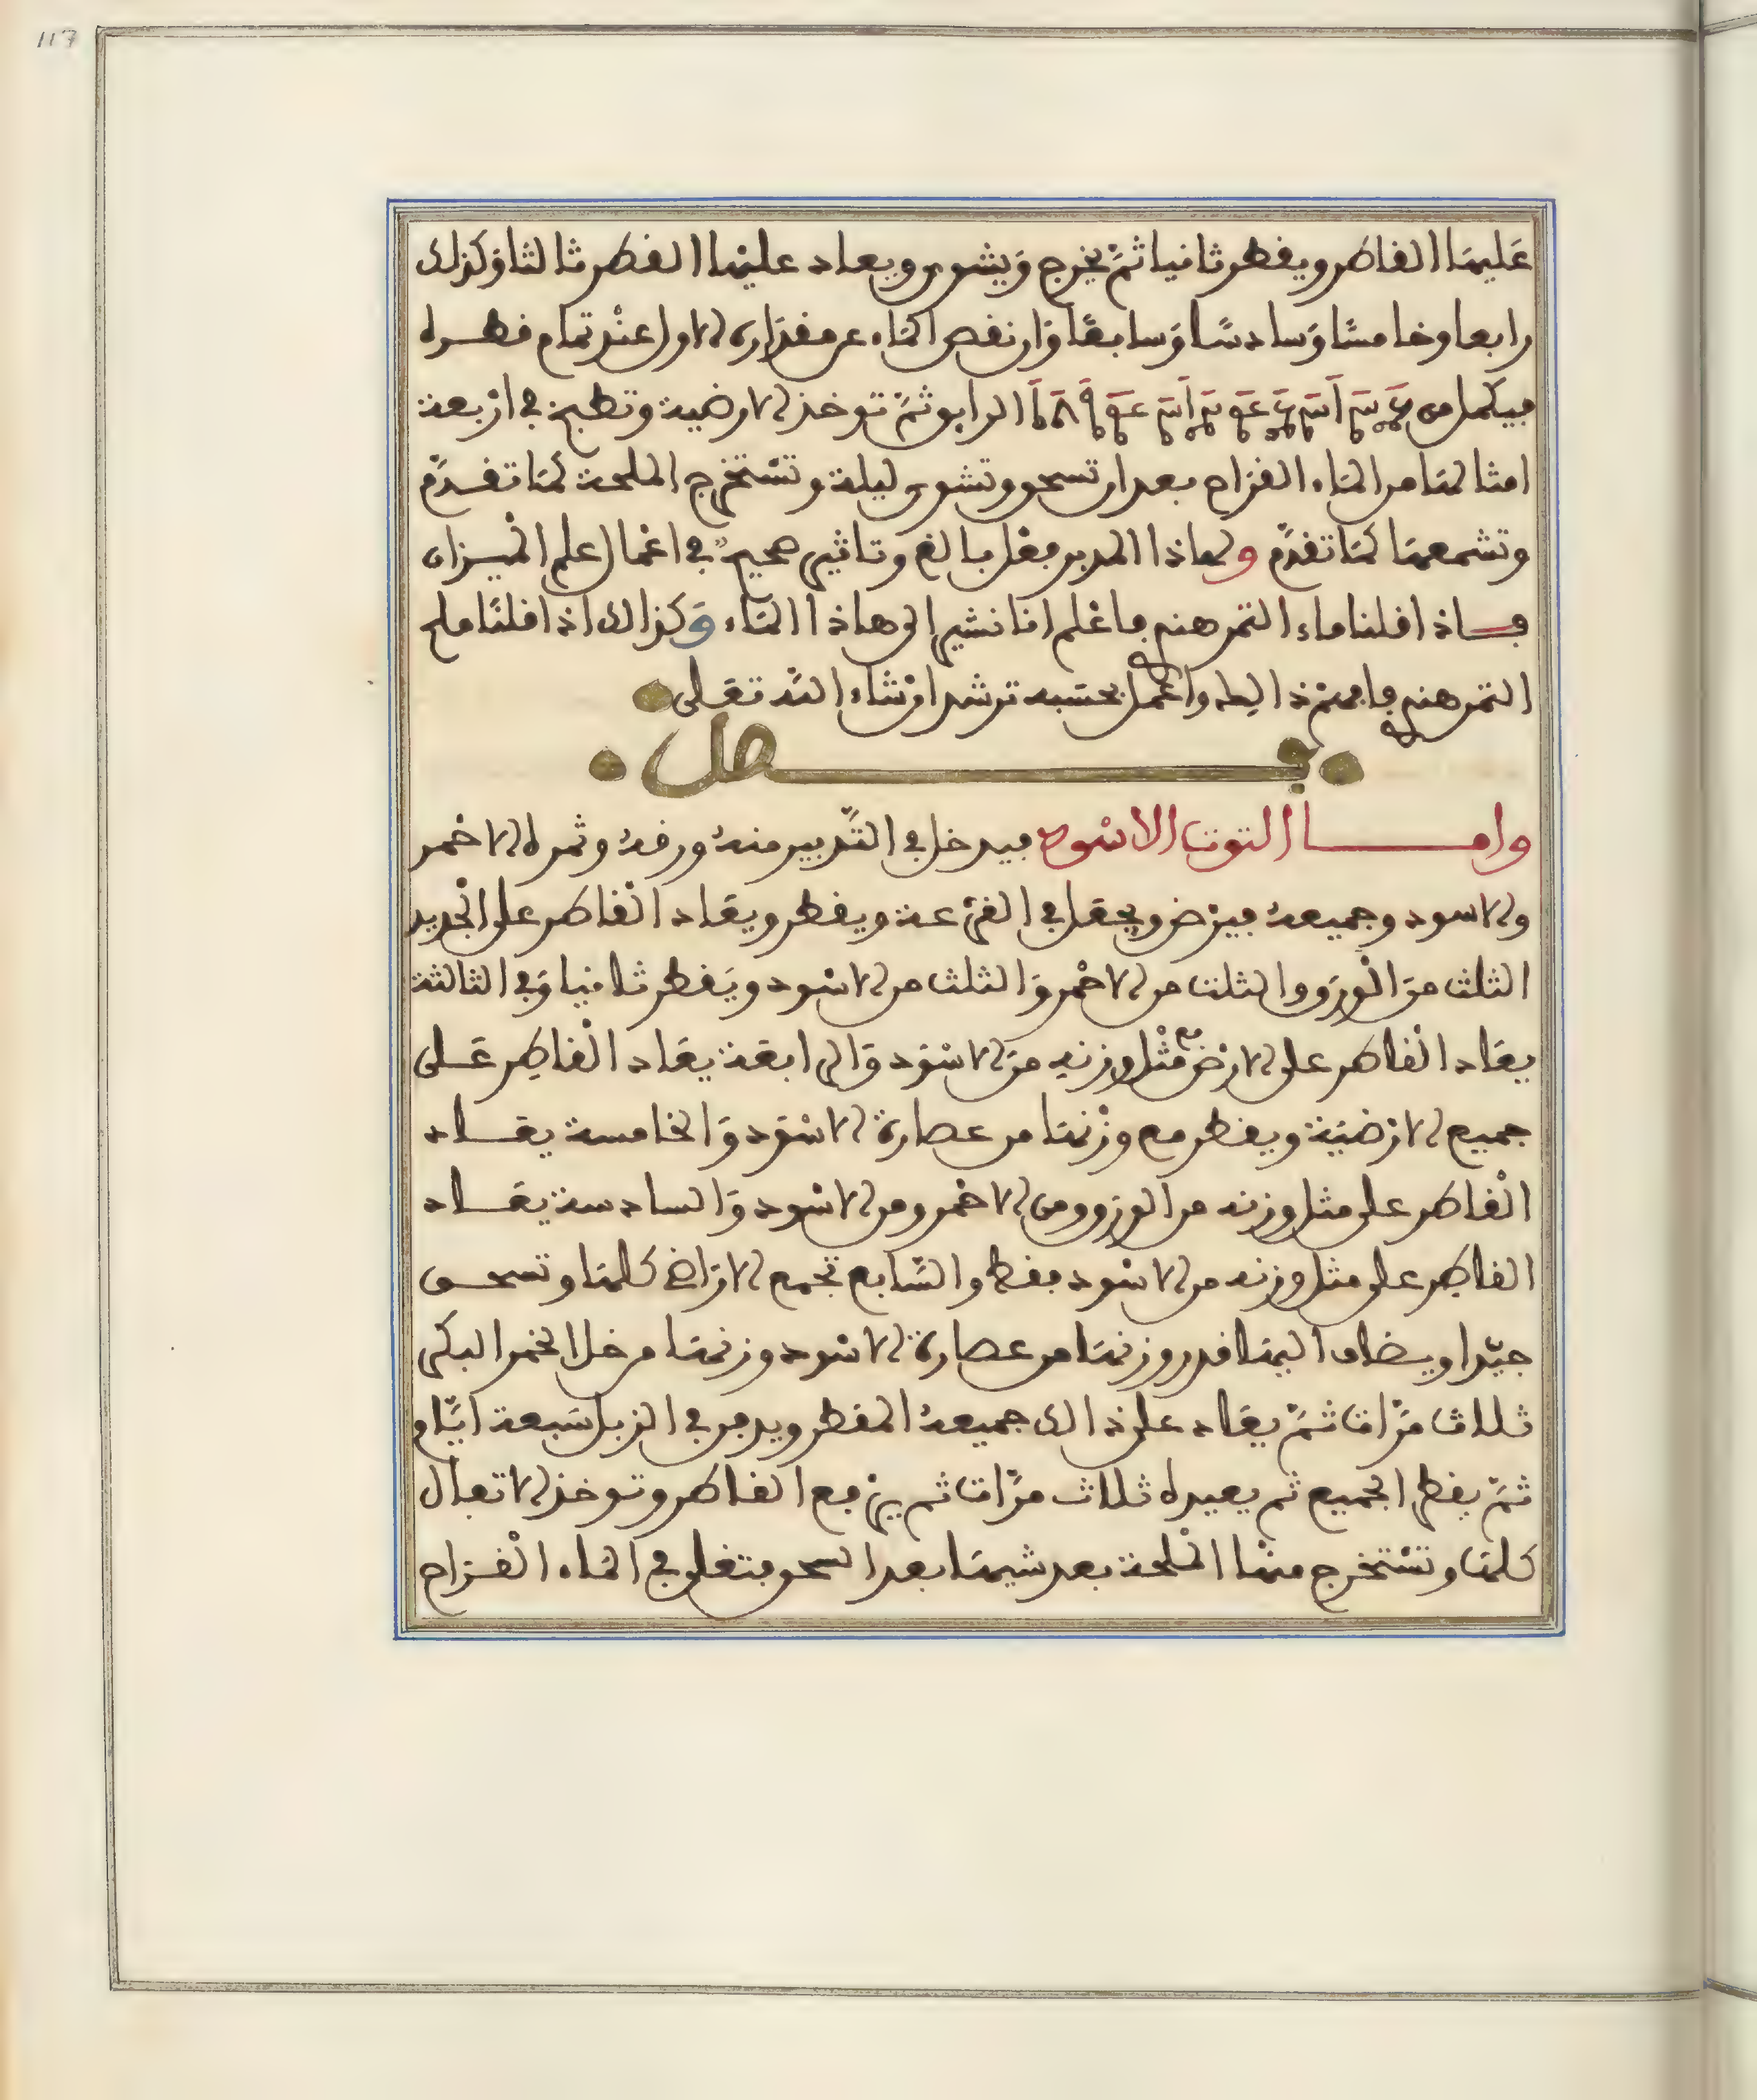 117
عَليهَا القاطر ويقطر ثانيا ثمّ يخرج وَيشوى ويعاد عليهَا القطر ثالثا وَكذلك
رابعا وخامسًا وَسادسًا وَسابعًا وَان نقص المَاء عن مقدَاره الاول عنْد تمام قطره
فيكمل من الرايق ثمّ توخذ الارضية وتطبخ في ارْبعة
امثالهَا من المَاء القرَاح بعد ان تسحق وتشوى ليلة وتسْتخرج الملحة كمَا تقدّم
وتشمعهَا كمَا تقدّم ولهاذا المدبر فعْل بالغ وتاثير صحيحٌ في اعْمال علم الميزان
فاذا قلنا ماء التمر هنْدى فاعْلم اننا نشير الى هاذا المَاء وَكذالك اذا قلنَا ملح
التمر هندى فافهمْ ذالك واعْمل بحسَبه ترشد انْ شاء اللّه تعَلى
فصل
وامــا التوت الاسْود فيدخل في التّدبير منهُ ورقهُ وثمره الاحمر
والاسود وجميعهُ فيرْض ويجعَل في القرْعة ويقطر ويعَاد الْقاطر على الْجديد
الثلث منَ الْورَق والثلث من الاحْمر وَالثلث من الاسْود ويَقطر ثانيا وَفى الثالثة
يعَاد الْقاطر على الارْض مع مثْل وزنهِ منَ الاسْوَد وَالرابعَة يعَاد الْقاطِر عَلى
جميع الارْضيَة ويقطر مع وزْنهَا من عصارة الاسْوَد وَالخامسة يعَاد
الْقاطر على مثل وزنه من الورق ومن الاحْمر ومن الاسْود وَالسادسة يعَاد
القاطِر على مثل وزنه من الاسْود فقط والسّابع تجمع الارَاضى كلهَا وتسحق
جيّدا ويضاف اليهَا قدر وزنهَا من عصارة الاسْود وزنهَا من خل الخمر البكر
ثلاث مرّات ثمّ يعَاد على ذالك جميعهُ المقطر ويدفن في الزبل سَبعة ايّام
ثمّ يقطر الجميع ثم يعيده ثلاث مرّات ثم يرْفع القاطر وتوخذ الاتفال
كلهَا وتسْتخرج منهَا الْملحة بعد شيهَا بعد السحق فتغلى في المَاء الْقرَاح